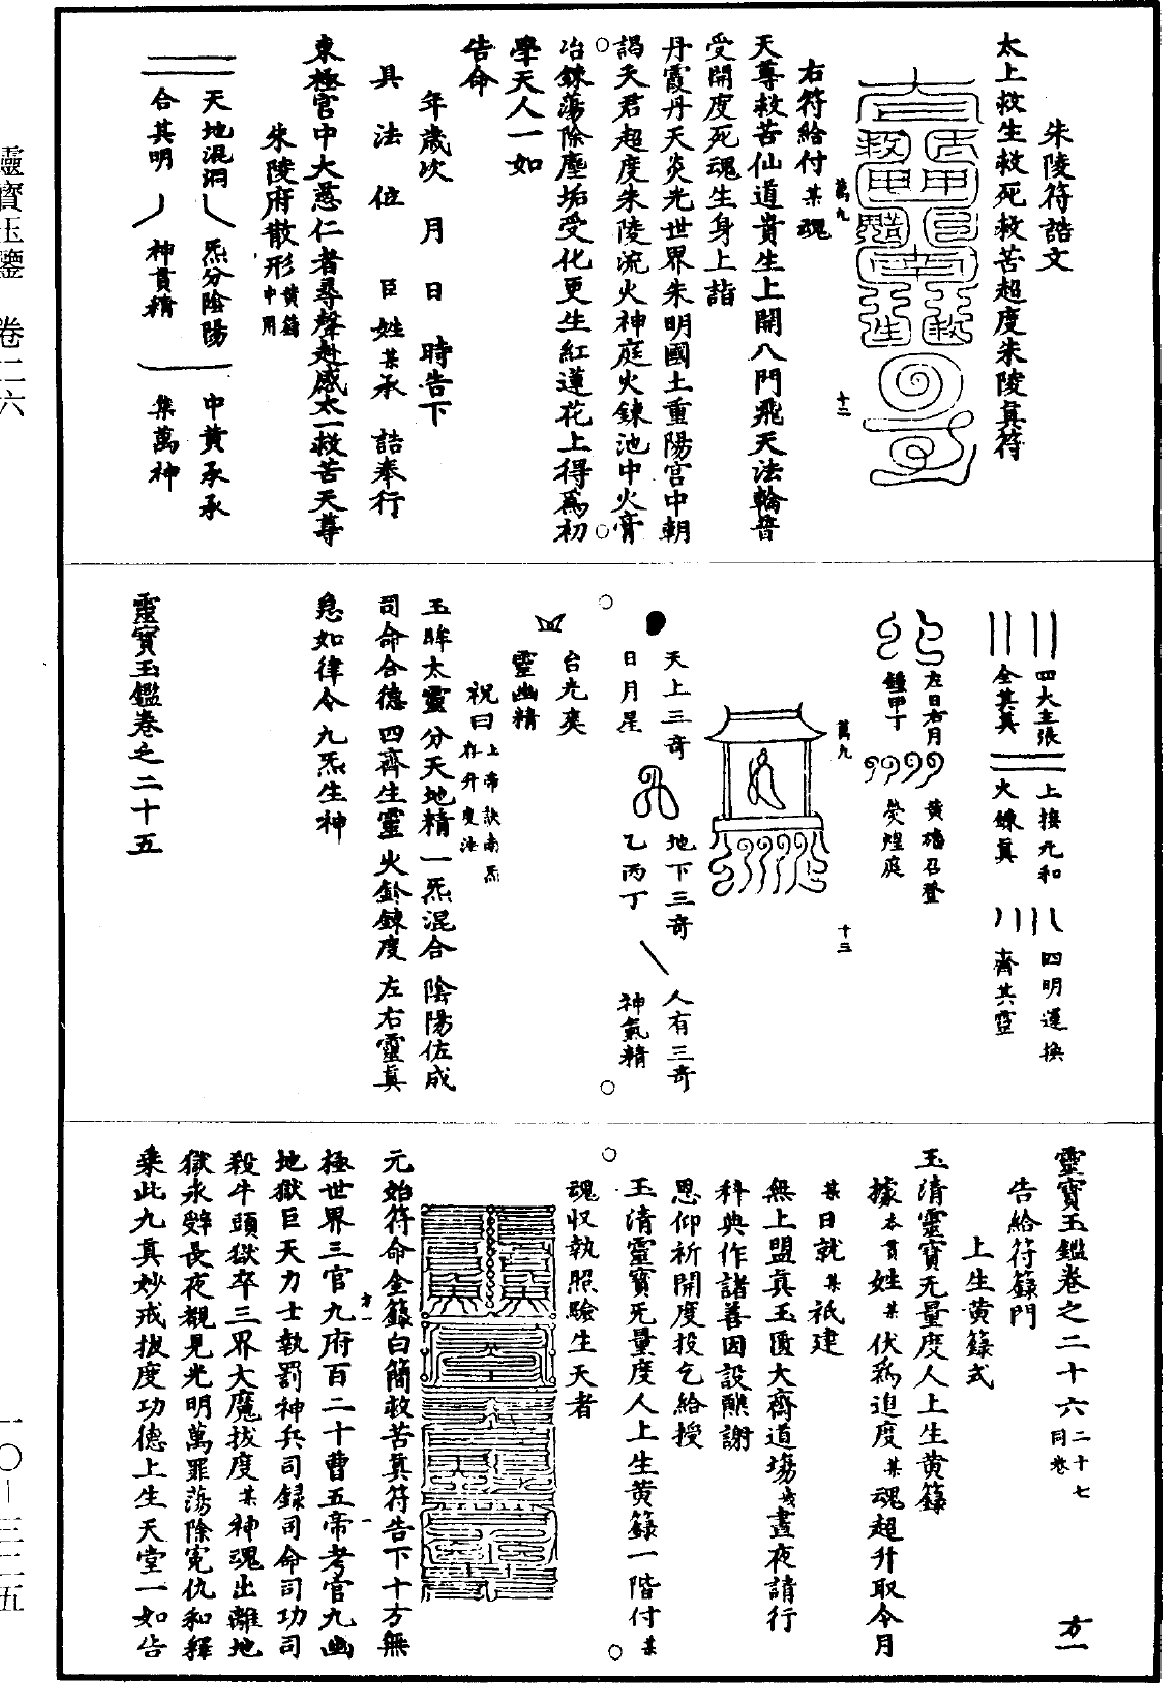 朱陵符誥文
太上救生救死救苦超度朱陵真符
萬九
十二
右符給付某魂
天尊救苦仙道貴生上開八門飛天法輪普
受開度死魂生身上詣
丹霞丹天炎光世界朱明國土重陽宮中朝
謁天君超度朱陵流火神庭火鍊池中火膏
冶鍊蕩除塵垢受化更生紅蓮花上得為初
學天人一如
告命
年歲次　月　日　時告下
具　法　位　臣姓某承　誥奉行
東極宮中大慈仁者尋聲赴感太一救苦天尊
朱陵府散形黃籙中用
天地混洞　炁分陰陽　中黃承承
合其明　神貫精　集萬神
四大主張　上接元和　四明運換
全其真　火鍊真　齊其靈
左日右月　黃旛召登
鍾甲丁　熒煌庭
萬九
十三
天上三奇　地下三奇　人有三奇
日月星　乙丙丁　神氣精
台光爽
靈幽精
祝曰上帝訣南炁存升度法
玉眸太靈　分天地精　一炁混合　陰陽佐成
司命合德　四齊生靈　火鈴鍊度　左右靈真
急如律令　九炁生神
靈寶玉鑑卷之二十五
靈寶玉鑑卷之二十六二十七同卷　方一
告給符籙門
上生黃籙式
玉清靈寶无量度人上生黃籙
據本貫姓某伏為追度某魂超升取今月
某日就某祇建
無上盟真玉匱大齋道場幾晝夜請行
科典作諸善因設醮謝
恩仰祈開度投乞給授
玉清靈寶无量度人上生黃籙一階付某
魂收執照驗生天者
元始符命金籙白簡救苦真符告下十方無
方一　一
極世界三官九府百二十曹五帝考官九幽
地獄巨天力士執罰神兵司録司命司功司
殺牛頭獄卒三界大魔拔度某神魂出離地
獄永辭長夜覩見光明萬罪蕩除冤仇和釋
乘此九真妙戒拔度功德上生天堂一如告
靈寶玉鑒　卷二六
一〇—三二五